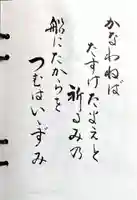 かなわねば
たすけたまえと
祈るみの
船にたからを
つむはいゝずみ